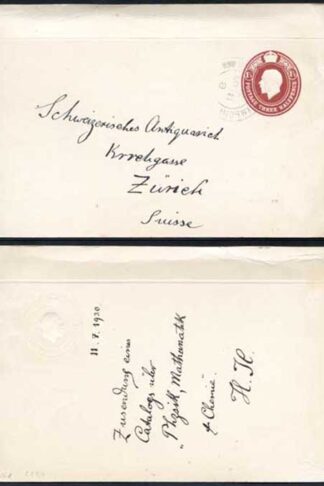 POSTAGE THREE HALFPENCE
Schweizerisches Antiquariat
Kirchgasse
Zürich
Suisse
11. 7. 1930
Zusendung eines
Catalogs über
"Physik, Mathematik
& Chemie"
H. H.